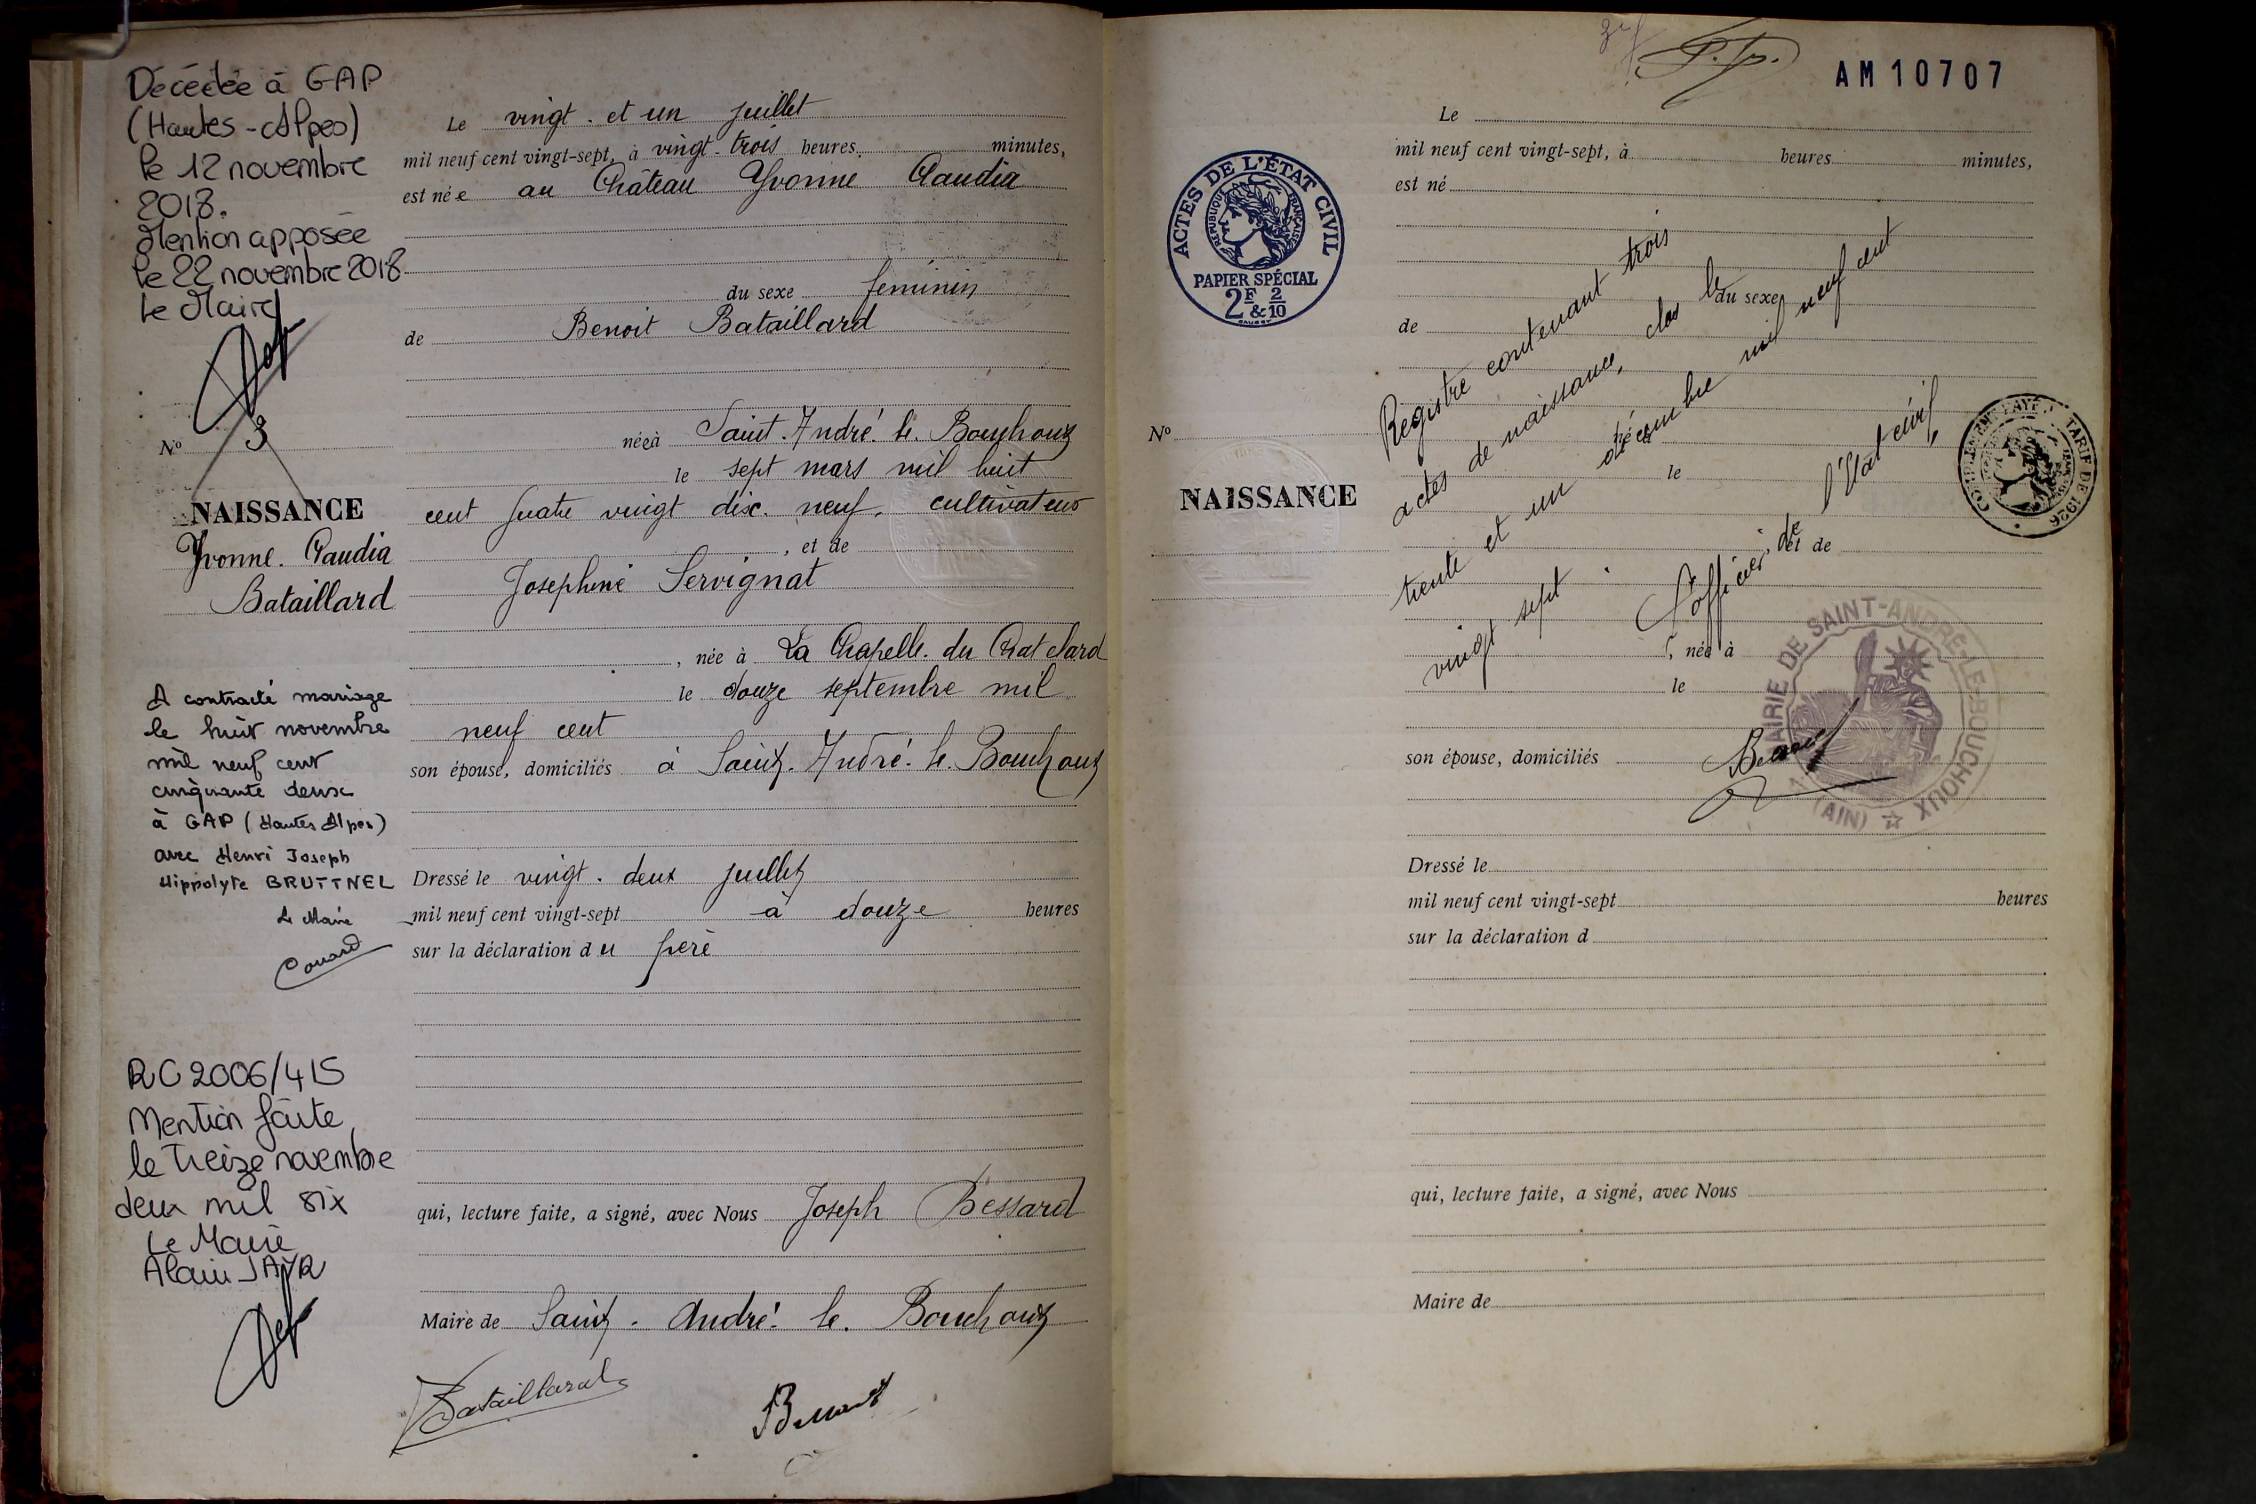 Décédée à GAP
(Hautes-Alpes)
le 12 novembre
2018.
Mention apposée
le 22 novembre 2018
Le Maire
N° 3
NAISSANCE
Yvonne. Claudia
Bataillard
A contracté mariage
le huit novembre
mil neuf cent
cinquante deux
à GAP (Hautes Alpes)
avec Henri Joseph
Hippolyte BRUTTNEL
Le Maire
Couard
RC 2006/415
Mention faite
le Treize novembre
deux mil six
Le Maire
Alain JAYR
Le vingt. et un juillet
mil neuf cent vingt-sept, à vingt-trois heures, minutes,
est née au Château Yvonne Claudia
du sexe féminin
de Benoit Bataillard
née à Saint. André. le. Bouchoux
le sept mars mil huit
cent quatre vingt dix. neuf, cultivateur
, et de
Joséphine Servignat
, née à La Chapelle. du Chatelard
le douze septembre mil
neuf cent
son épouse, domiciliés à Saint. André. le. Bouchoux
Dressé le vingt. deux juillet
mil neuf cent vingt-sept à douze heures
sur la déclaration du père
qui, lecture faite, a signé, avec Nous Joseph Bessard
Maire de Saint. André. le. Bouchoux
Bataillard
Bessard
AM 10707
ACTES DE L'ÉTAT CIVIL
RÉPUBLIQUE FRANÇAISE
PAPIER SPÉCIAL
2F & 2/10
Le
mil neuf cent vingt-sept, à heures minutes,
est né
du sexe
de
N°
NAISSANCE
le
, et de
, née à
le
son épouse, domiciliés
Dressé le
mil neuf cent vingt-sept heures
sur la déclaration d
qui, lecture faite, a signé, avec Nous
Maire de
Registre contenant trois
actes de naissance, clos le
trente et un décembre mil neuf cent
vingt sept.
L'officier de l'Etat civil,
COMPLÉMENT PAYÉ TARIF DE 1926
MAIRIE DE SAINT-ANDRÉ-LE-BOUCHOUX
(AIN)